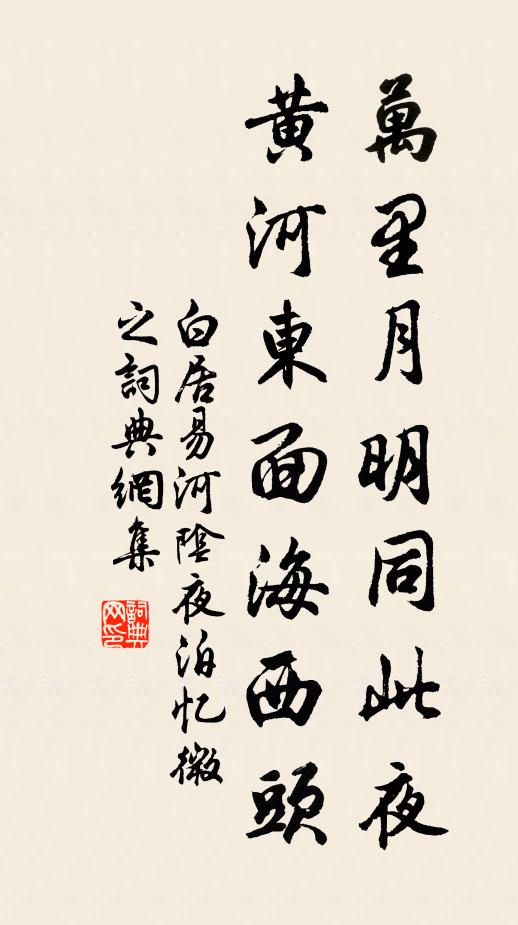 萬里月明同此夜
黃河東面海西頭
白居易河陰夜泊忆微
之詞典網集
詞典網印